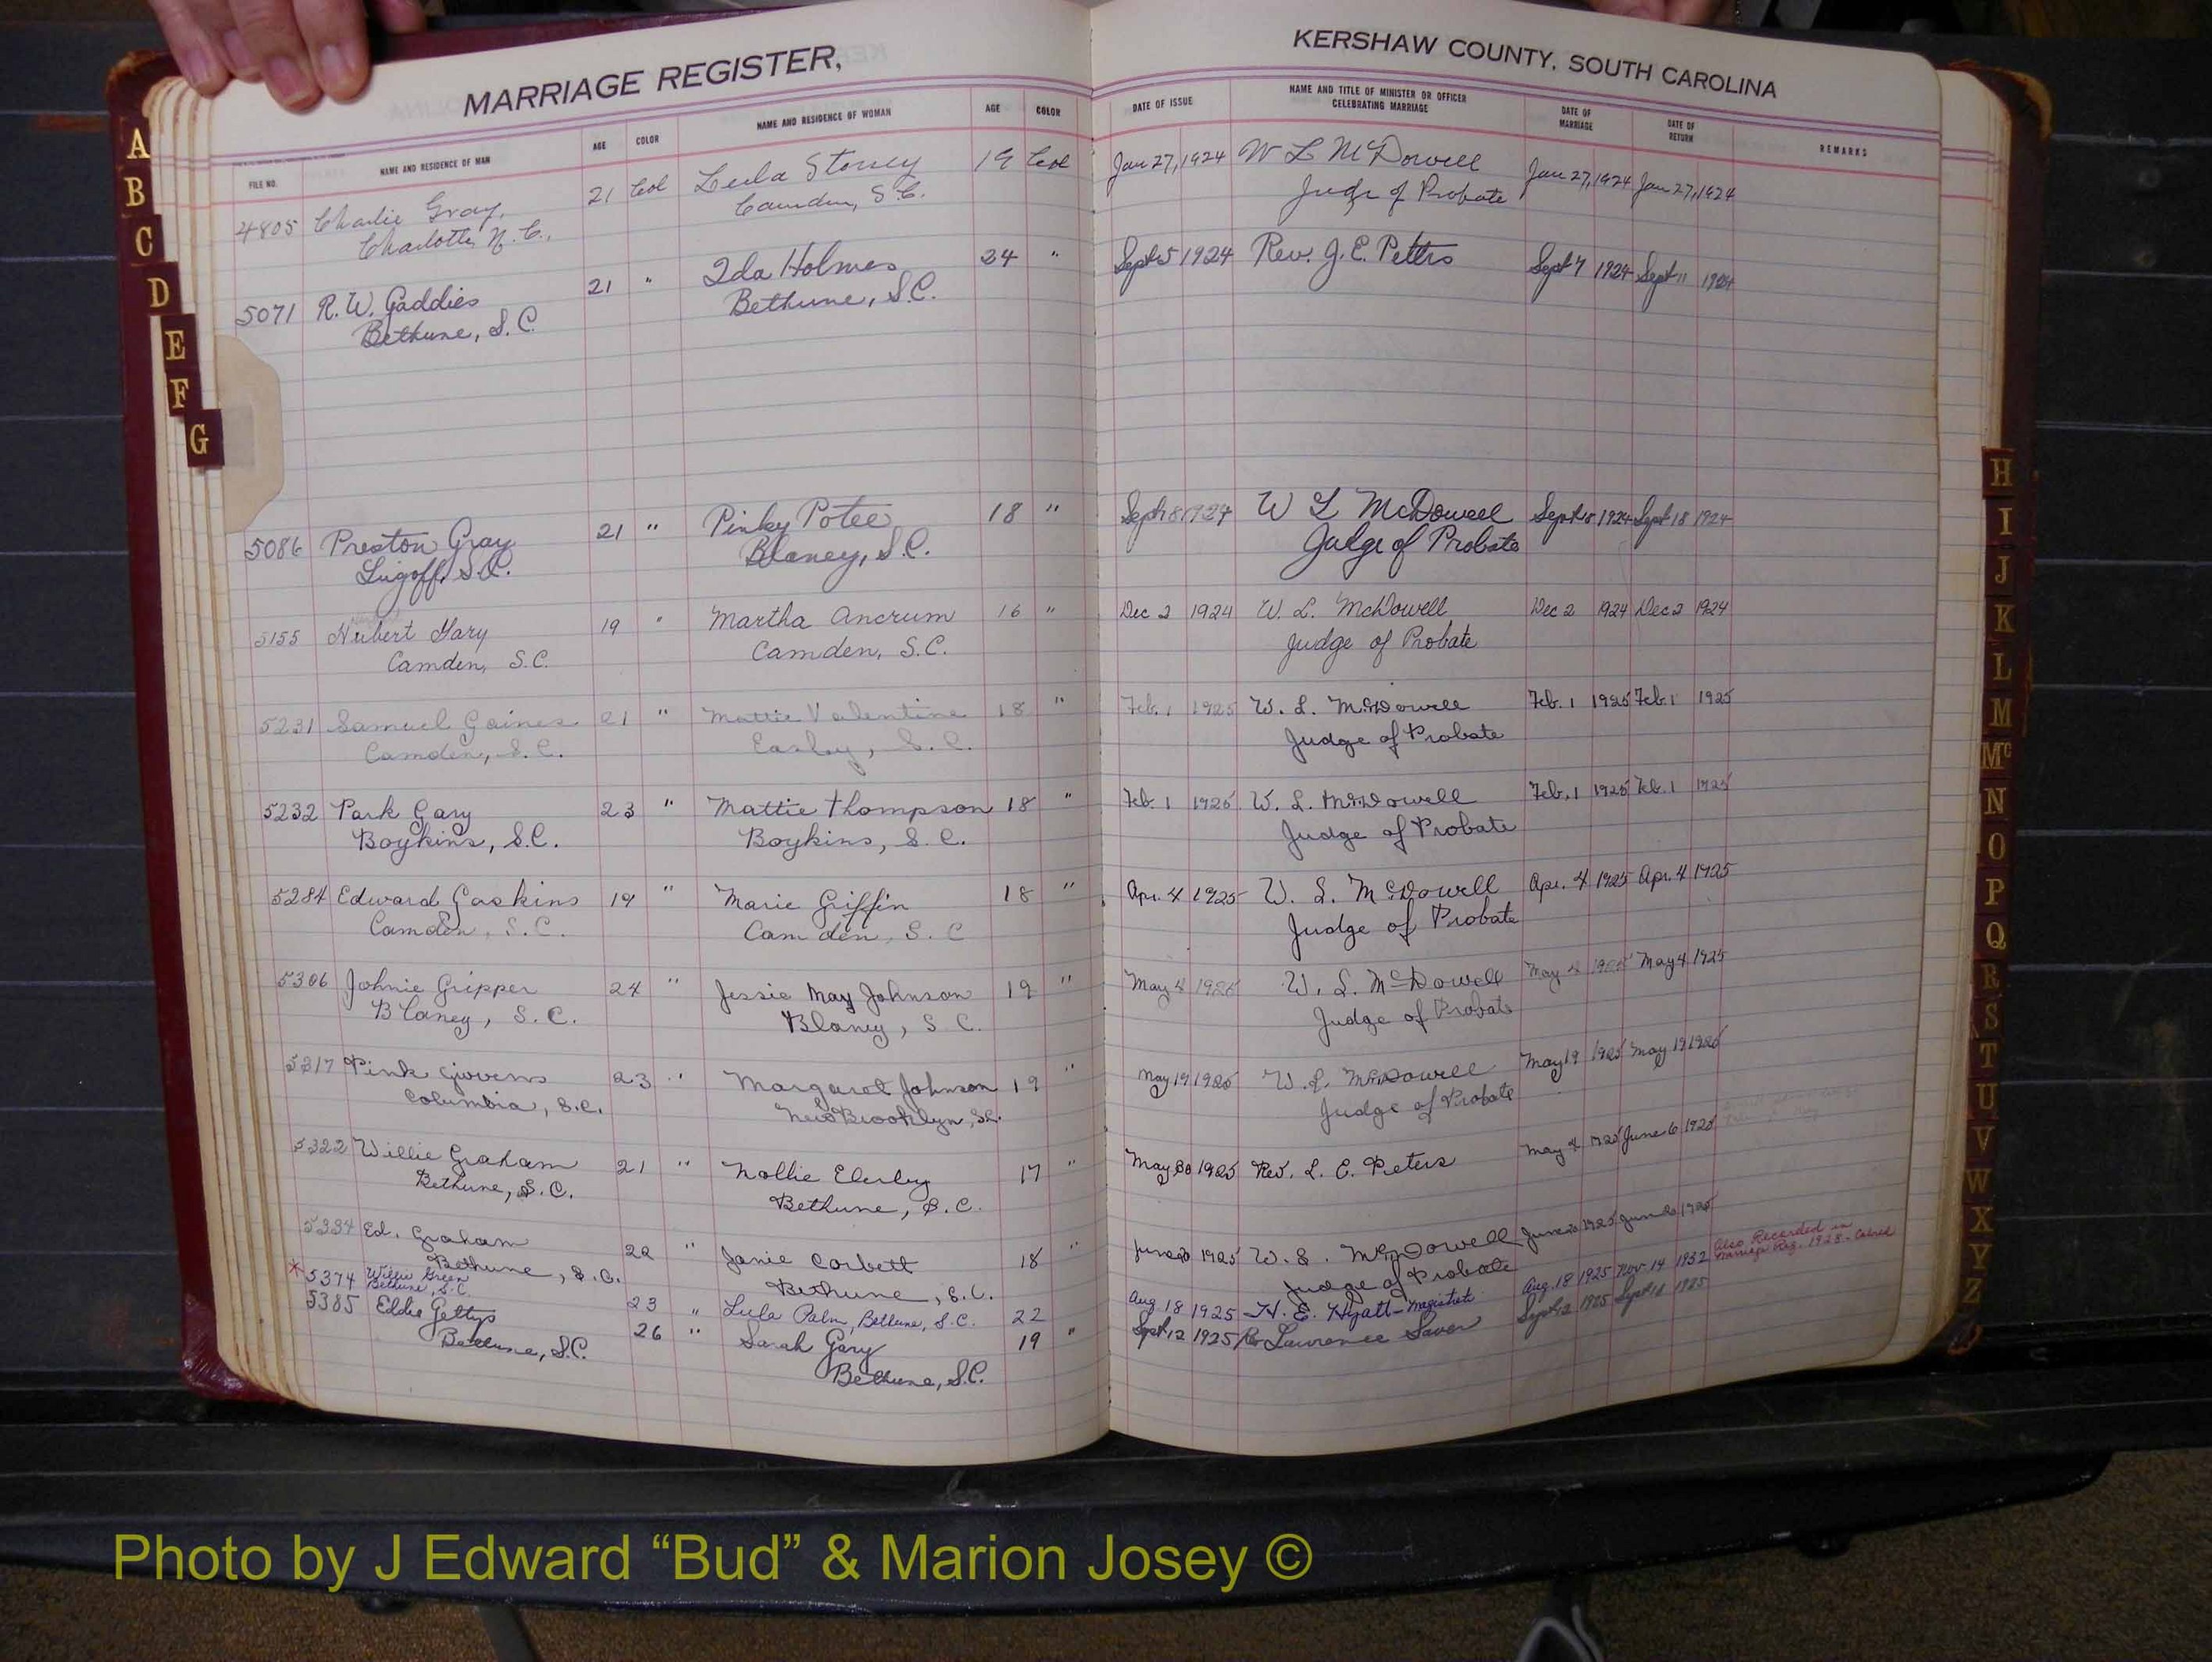 MARRIAGE REGISTER,
KERSHAW COUNTY, SOUTH CAROLINA
FILE NO. NAME AND RESIDENCE OF MAN AGE COLOR NAME AND RESIDENCE OF WOMAN AGE COLOR DATE OF ISSUE NAME AND TITLE OF MINISTER OR OFFICER CELEBRATING MARRIAGE DATE OF MARRIAGE DATE OF RETURN REMARKS
4805 Charlie Gray, 21 Col Lula Storey 19 Col Jan 27, 1924 W L McDowell Jan 27, 1924 Jan 27, 1924
Charlotte, N. C., Camden, S. C. Judge of Probate
5071 R. W. Gaddies 21 " Ida Holmes 24 " Sept 5 1924 Rev. J. E. Petters Sept 7 1924 Sept 11 1924
Bethune, S. C. Bethune, S. C.
5086 Preston Gray 21 " Pinky Potee 18 " Sept 18 1924 W L McDowell Sept 18 1924 Sept 18 1924
Lugoff, S. C. Blaney, S. C. Judge of Probate
5155 Hubert Gary 19 " Martha Ancrum 16 " Dec 2 1924 W. L. McDowell Dec 2 1924 Dec 2 1924
Camden, S. C. Camden, S. C. Judge of Probate
5231 Samuel Gaines 21 " Mattie Valentine 18 " Feb. 1 1925 W. L. McDowell Feb. 1 1925 Feb. 1 1925
Camden, S. C. S. C. Judge of Probate
5232 Park Gary 23 " Mattie Thompson 18 " Feb. 1 1925 W. L. McDowell Feb. 1 1925 Feb. 1 1925
Boykins, S. C. Boykins, S. C. Judge of Probate
5284 Edward Gaskins 19 " Marie Griffin 18 " Apr. 4 1925 W. L. McDowell Apr. 4 1925 Apr. 4 1925
Camden, S. C. Camden, S. C Judge of Probate
5306 Johnie Gripper 24 " Jessie May Johnson 19 " May 4 1925 W. L. McDowell May 4 1925 May 4 1925
Blaney, S. C. Blaney, S. C. Judge of Probate
5317 Pink Givens 23 " Margaret Johnson 19 " May 19 1925 W. L. McDowell May 19 1925 May 19 1925
Columbia, S. C. New Brooklyn, S.C. Judge of Probate
5322 Willie Graham 21 " Nollie Elerby 17 " May 30 1925 Rev. L. E. Pieters May 1925 June 6 1925
Bethune, S. C. Bethune, S. C.
5334 Ed. Graham 22 " Janie Corbett 18 " June 20 1925 W. L. McDowell June 20 1925 June 20 1925
Bethune, S. C. Bethune, S. C. Judge of Probate
* 5374 Willie Green 23 " Lula Palm, Bethune, S. C. 22 Aug. 18 1925 H. E. Hyatt - Magistrate Aug. 18 1925 Nov. 14 1932 Also Recorded in
Bethune, S. C. Marriage Reg. 1928 - Colored
5385 Eddie Gettys 26 " Sarah Gary 19 " Sept. 12 1925 Lawrence Sept 12 1925 Sept 1925
Bethune, S. C. Bethune, S. C.
A
B
C
D
E
F
G
H
I
J
K
L
M
Mc
N
O
P
Q
R
S
T
U
V
W
X
Y
Z
Photo by J Edward “Bud” & Marion Josey ©